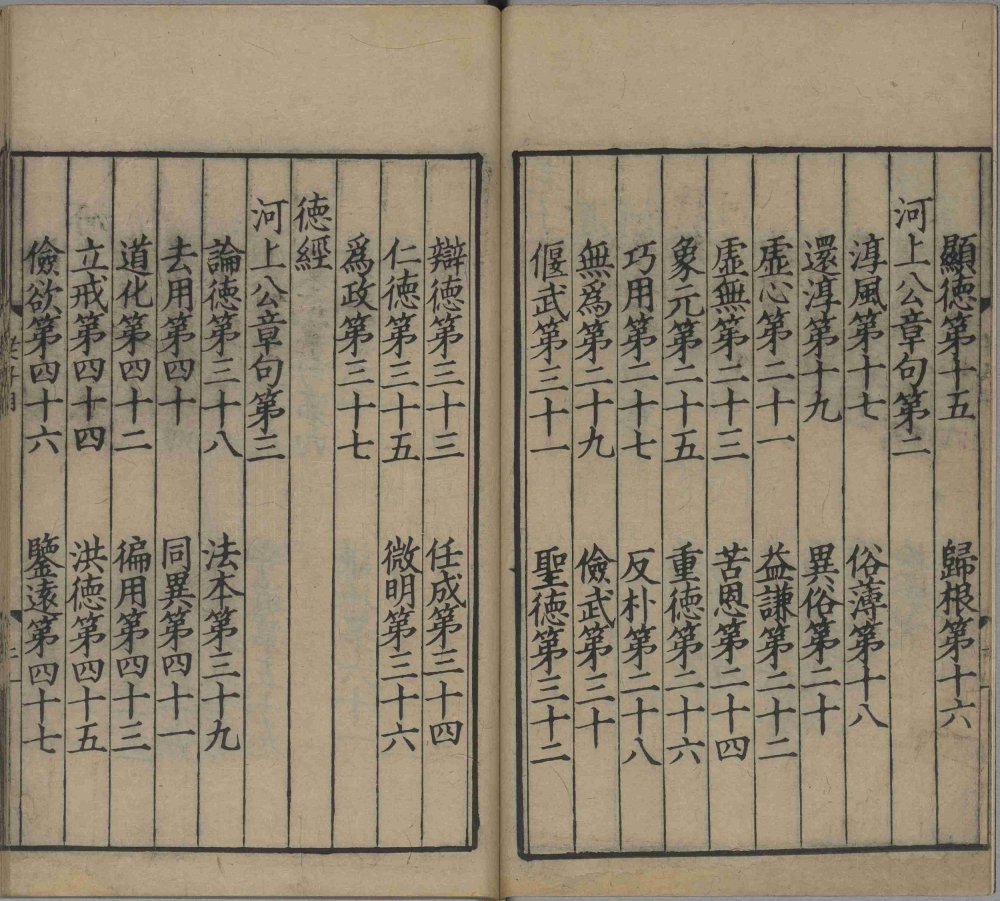 顯德第十五 歸根第十六
河上公章句第二
淳風第十七 俗薄第十八
還淳第十九 異俗第二十
虛心第二十一 益謙第二十二
虛無第二十三 苦恩第二十四
象元第二十五 重德第二十六
巧用第二十七 反朴第二十八
無爲第二十九 儉武第三十
偃武第三十一 聖德第三十二
辯德第三十三 任成第三十四
仁德第三十五 微明第三十六
爲政第三十七
德經
河上公章句第三
論德第三十八 法本第三十九
去用第四十 同異第四十一
道化第四十二 徧用第四十三
立戒第四十四 洪德第四十五
儉欲第四十六 鑒遠第四十七